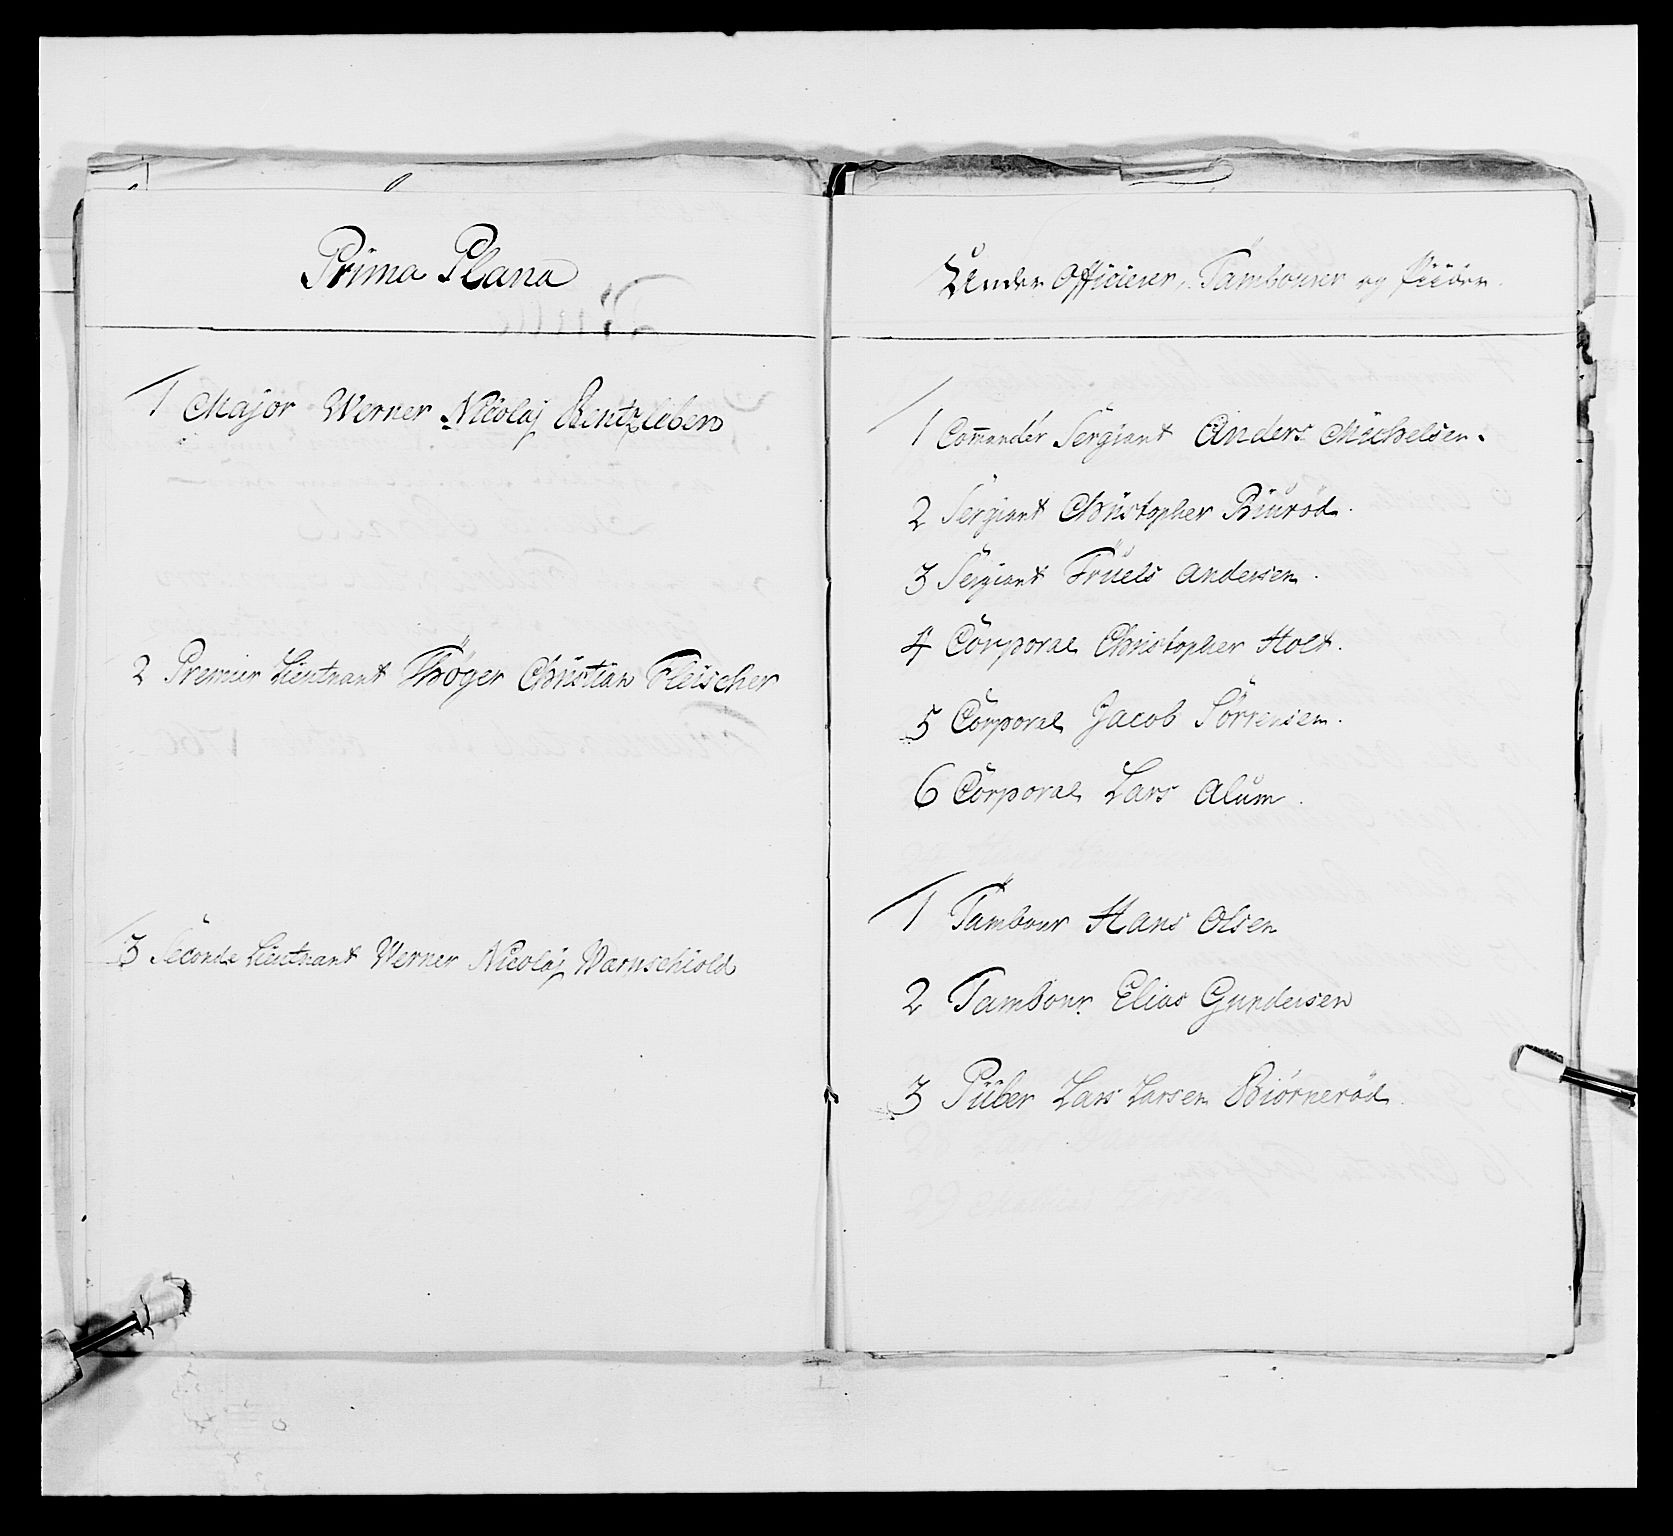 Prima Plana
1 Major Werner Nicolaj Rentzleben
2 Premier Lieutnant Thöger Christian Fleischer
3 Seconde Lieutnant Werner Nicolaj Warnschiold
Under Officierer, Tambourer og
1 Commandér Sergiant Anders Michelsen.
2 Sergiant Christopher Biuröd.
3 Sergiant Truels Andersen.
4 Corporal Christopher Holt.
5 Corporal Jacob Sörrensen.
6 Corporal Lars Alum.
1 Tambour Hans Olsen
2 Tambour Elias Gundersen
3 Piiber Lars Larsen Biörneröd.